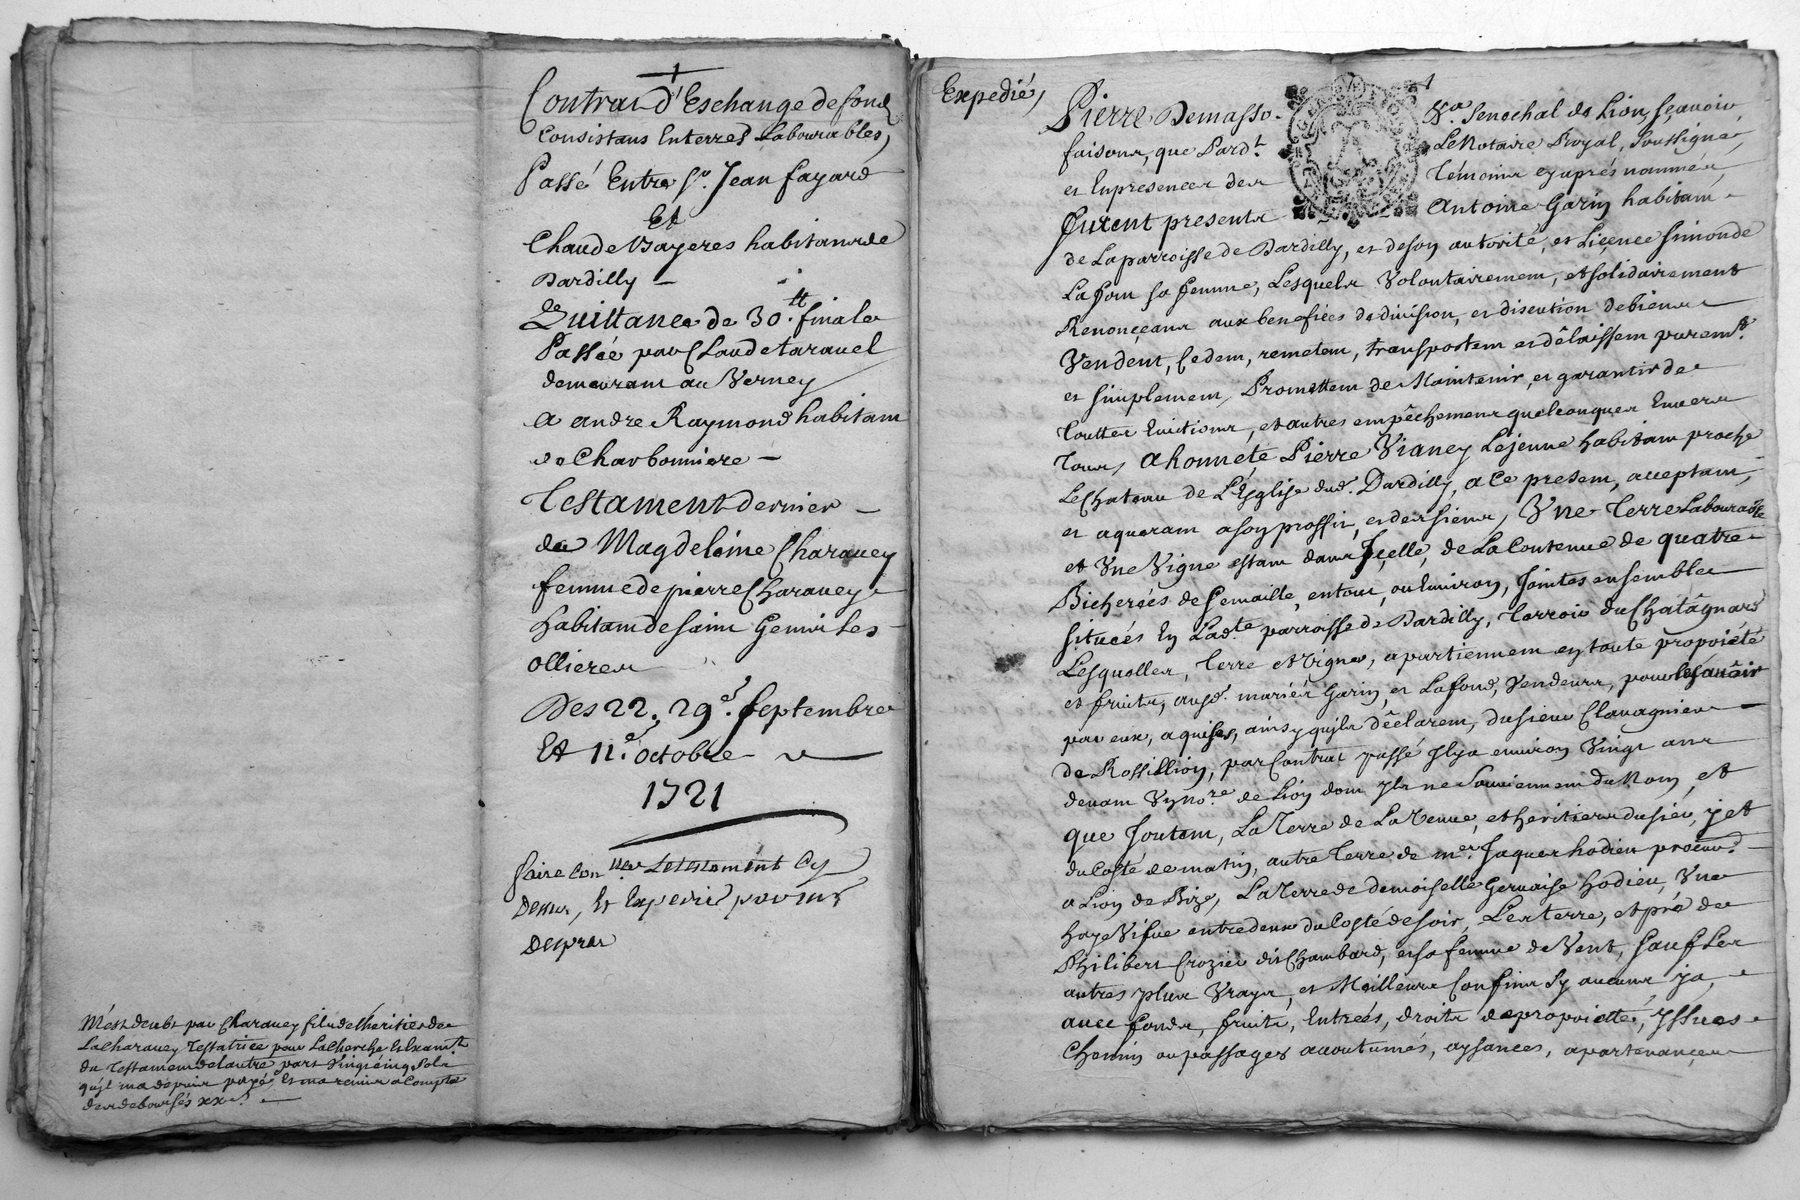 Contrat d'Eschange de fond
Consistans En terres Labourables,
Passé Entre Sr. Jean fayard
Et
Claude Bayeres habitans de
Dardilly
Quittance de 30.tt finale
Passée par Claude taravel
demeurant au Verney
a andre Raymond habitant
de Charbonniere
Testament dernier
de Magdeleine Charavey
femme de pierre Charavey
habitant de saint Genis Les
ollieres
Des 22, 29e. septembre
Et 11e. octobre
1721
faire con Le testament Cy
Dessus, Et Expedié pour
M'est deubt par Charavey fils de lheritier de
La Charavey Testatrice pour La Cherche Et
du Testament de lautre part Vingt cinq Sols
qu'il ma depuis payé Et ma remis a Compte
des deboursés xx s.
Expedié,
Pierre Demasso Senechal de Lion, sçavoir
faisons, que Pardt. Le Notaire Royal, Soussigné,
et En presence des Témoins cy aprés nommés,
furent presents Antoine Garin habitant
de La parroisse de Dardilly, et de son autorité, et Liçence Simonde
Lafont sa femme, Lesquels Volontairement, et solidairement
Renonçeans aux benefices de division, et discution de biens
Vendent, Cedent, remetent, transportent et dêlaissent puremt.
et simplement, Promettent de Maintenir, et garantir de
touttes Evictions, et autres empêchements quelconques Envers
tous, a honnete Pierre Vianey Lejeune habitant proche
Le Chateau de L'Église dud. Dardilly, a Ce present, acceptant,
et aquerant a son proffit, et des siens, Vne Terre Labourable
et Vne Vigne estant dans Jçelle, de La Contenue de quatre
Bicherées de Semaille, entour, ou Environ, Jointes ensembles
situées En Ladte. parroisse de Dardilly, Terroir du Chatâgnard
Lesquelles, Terre et Vigne, apartiennent en toute propriété
et fruits, ausd. mariés Garin, et Lafond, Vendeurs, pour les avoir
par eux, aquises, ainsy qu'ils déclarent, du sieur Clavagnier
de Rossillion, par Contrat passé Jl y a environ Vingt ans
devant Vn nore. de Lion dont Jls ne Souviennent du Nom, Et
que Joutent, La Terre de La Veuve, et heritiers du sieur
du Costé de matin, autre Terre de mer. Jaques hodieu
a Lion de Bize, La Terre de demoiselle Gervaise hodieu, Vne
haye Vifve entredeux du Costé de soir, Les terre, et pré de
Philibert Crozier dit Chambard, et sa femme de Vent, Sauf Les
autres plus Vrays, et Meilleurs Confins Sy aucuns y a,
avec fonds, fruits, Entrées, droits de propriété, yssües
Chemin ou passages accoutumés, aysances, apartenançes